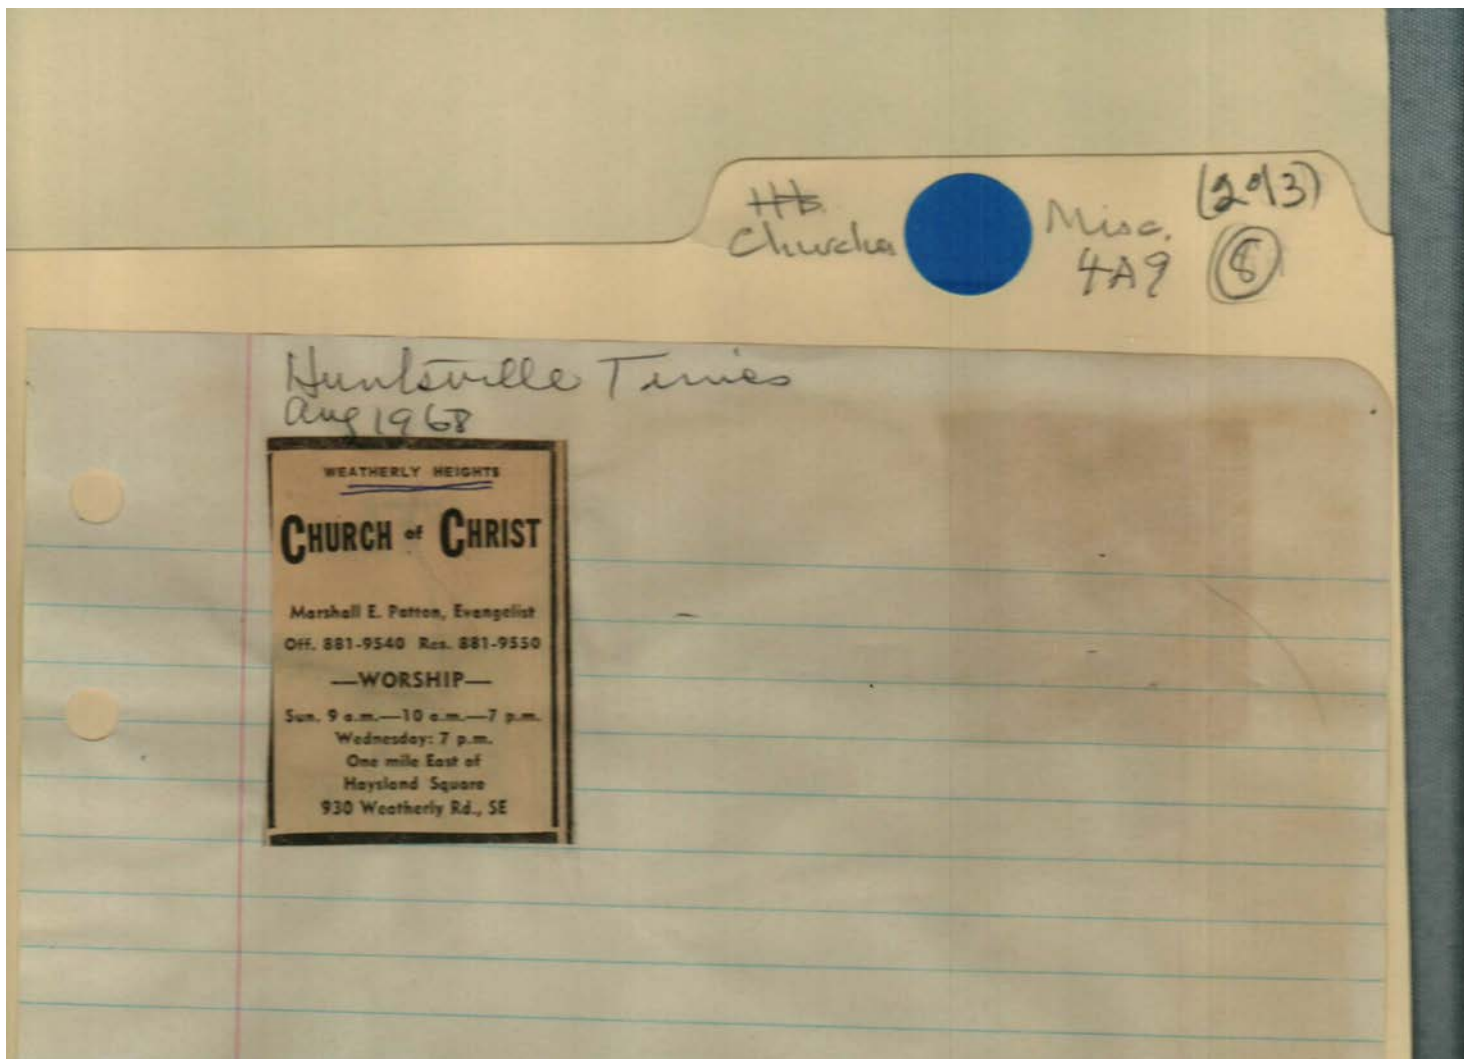 (2 of 3)
Misc.
4A9
8
Huntsville Times
Aug 1968
WEATHERLY HEIGHTS
CHURCH of CHRIST
Marshall E. Patton, Evangelist
Off. 881-9540 Res. 881-9550
—WORSHIP—
Sun. 9 a.m.—10 a.m.—7 p.m.
Wednesday: 7 p.m.
One mile East of
Haysland Square
930 Weatherly Rd., SE